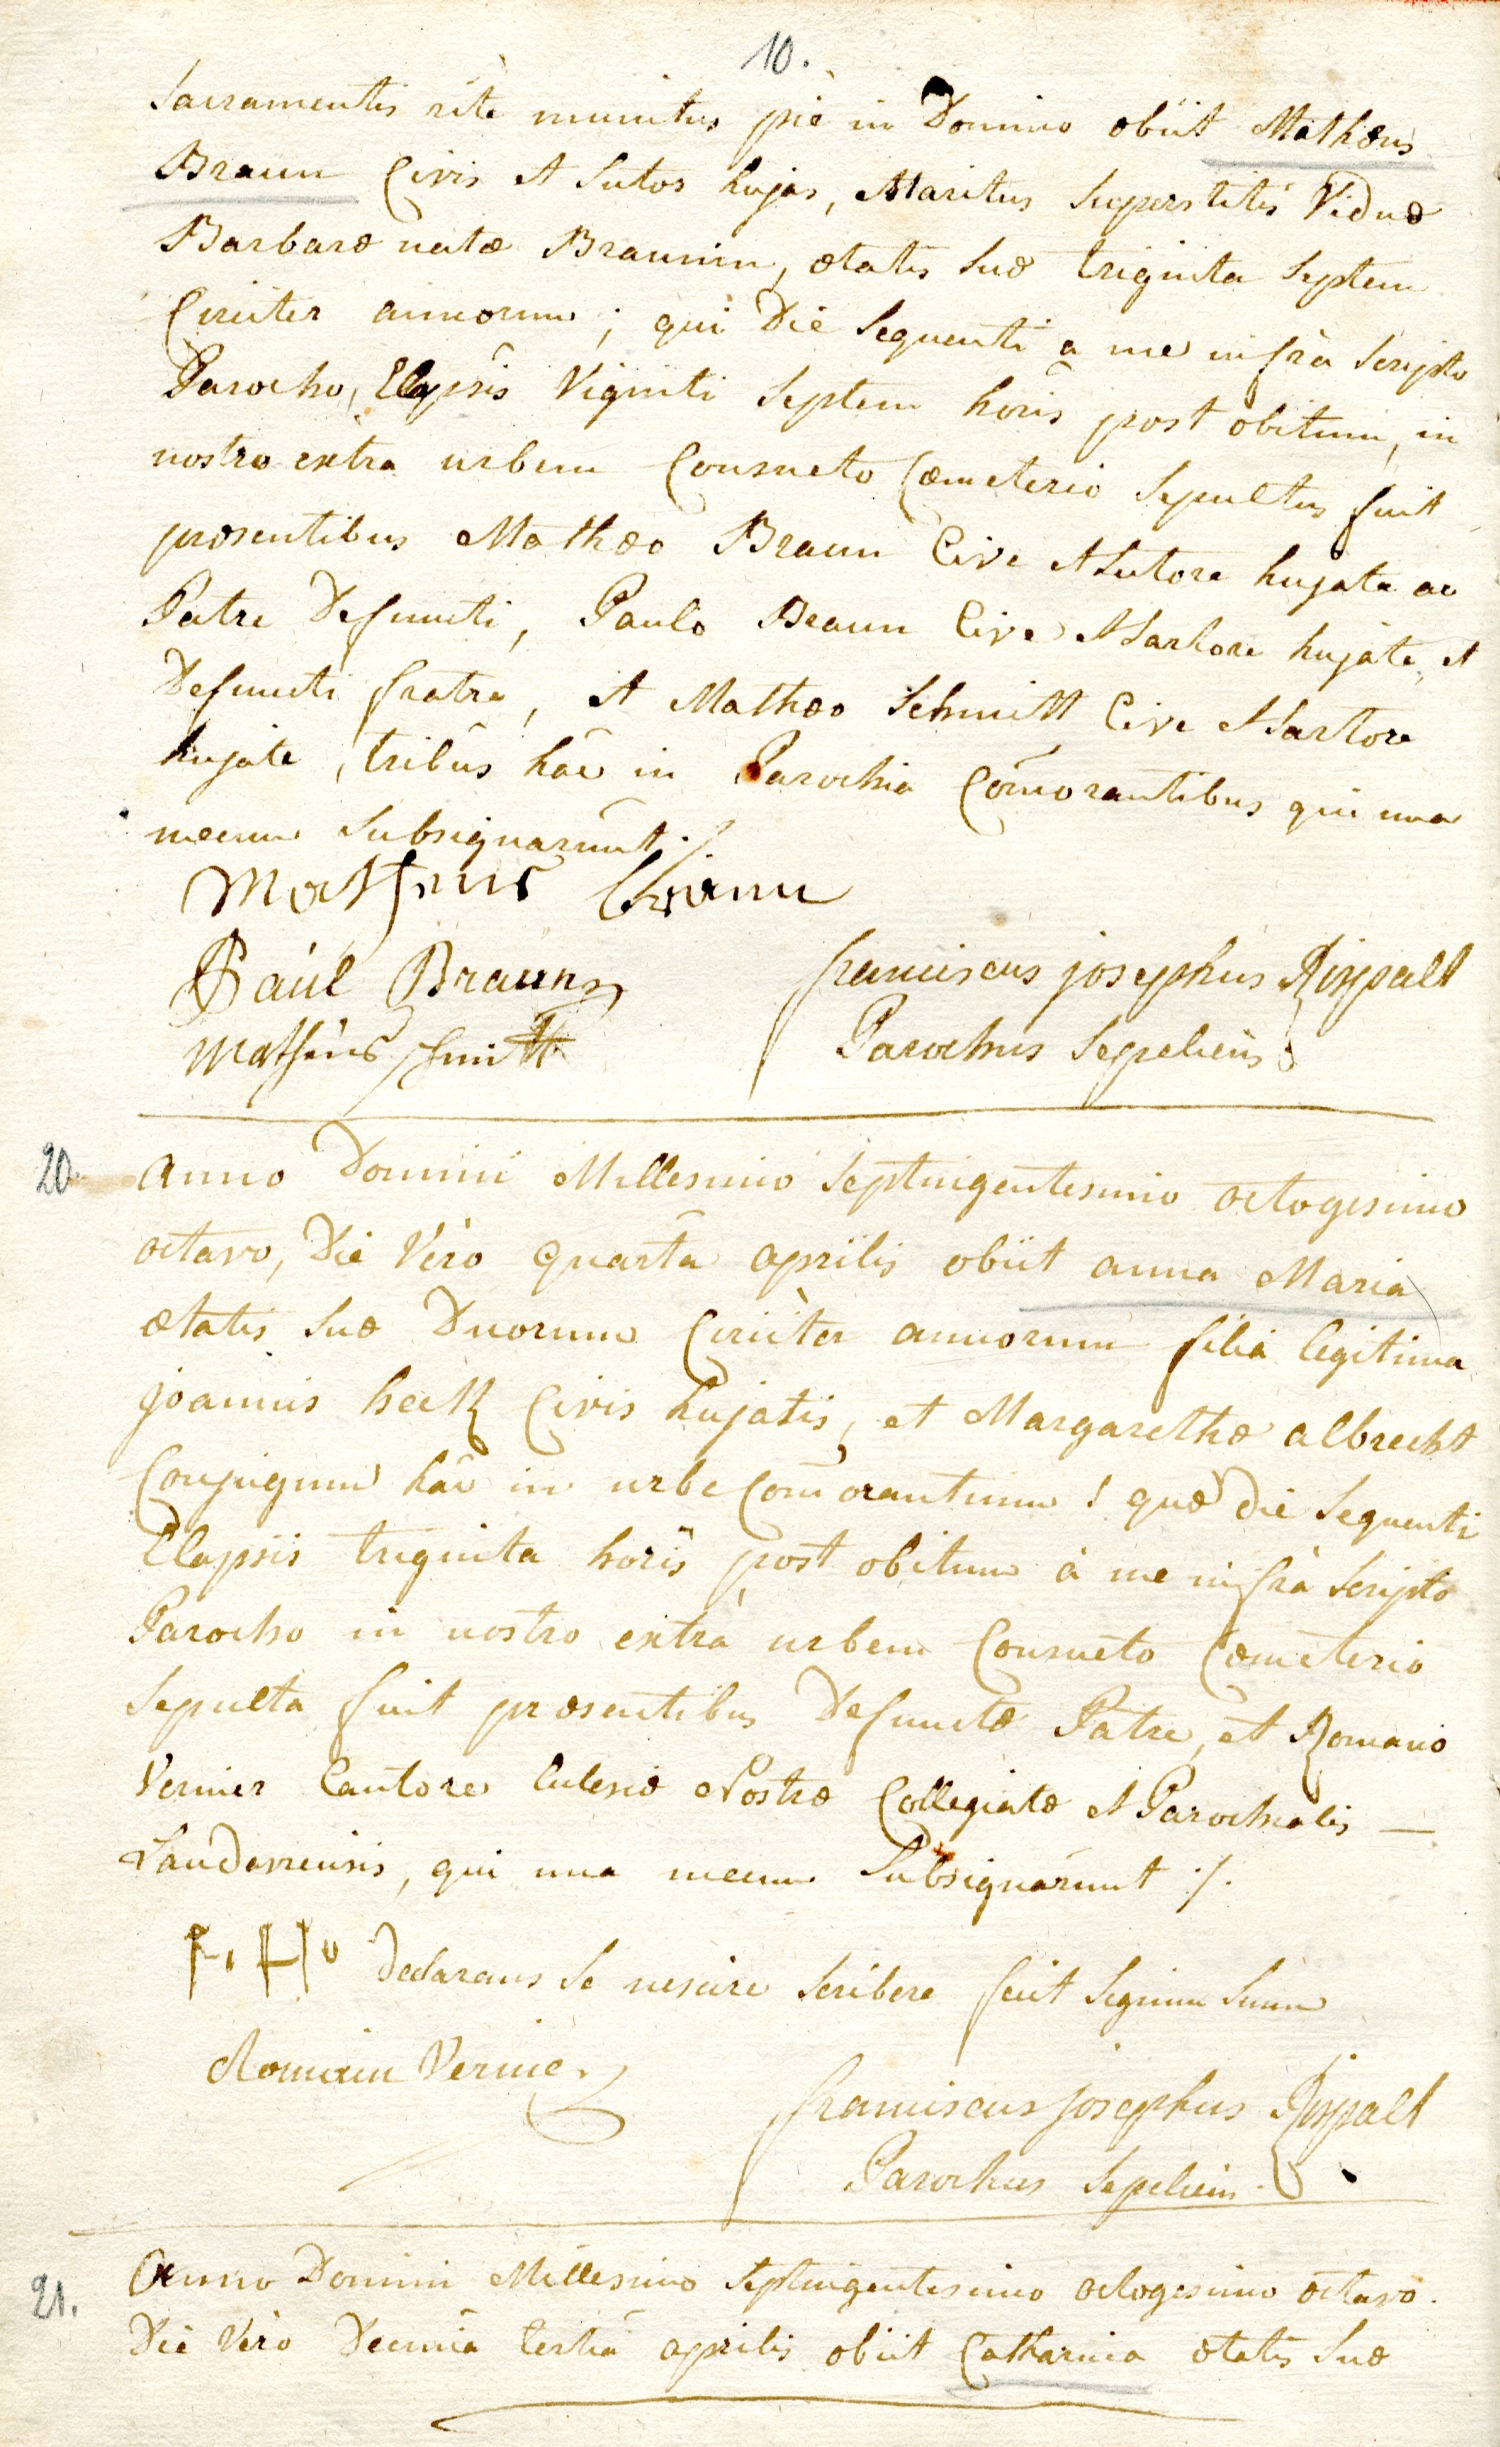 10.
Sacramentis rite munitus piè in Domino obiit Mathæus
Braun Civis et Sutor hujas, Maritus Superstitis Viduæ
Barbaræ natæ Braunin, ætatis suæ triginta Septem
Circiter annorum; qui Die Sequenti a me infrà Scripto
Parocho, Elapsis Viginti Septem horis post obitum, in
nostro extra urbem Consueto Cœmeterio Sepultus fuit
præsentibus Mathæo Braun Cive et Sutore hujate ac
Patre Defuncti, Paulo Braun Cive et Sartore hujate, et
Defuncti fratre, et Mathæo Schmitt Cive et Sartore
hujate, tribus hâc in Parochia Com̄orantibus qui una
mecum Subsignarunt ./.
Matheus Braun
Paul Braun
franciscus josephus Rippalt
Matheus Schmitt
Parochus Sepeliens
20.
Anno Domini Millesimo Septingentesimo octogesimo
octavo, Die Vero quarta aprilis obiit anna Maria
ætatis suæ Duorum Circiter annorum filia legitima
joannis heck Civis hujatis, et Margarethæ albrecht
Conjugum hâc in urbe Com̄orantium; quæ die Sequenti
Elapsis triginta horis post obitum à me infrà Scripto
Parocho in nostro extrà urbem Consueto Cœmeterio
Sepulta fuit præsentibus Defunctæ Patre, et Romano
Vernier Cantore Ecclesiæ Nostræ Collegiatæ et Parochialis —
Landaviensis, qui una mecum Subsignarunt ./.
Declarans se nescire Scribere fecit Signum Suum
Romain Vernier
franciscus josephus Rippalt
Parochus Sepeliens.
21.
Anno Domini Millesimo Septingentesimo octogesimo octavo.
Die Vero Decima tertia aprilis obiit Catharina ætatis Suæ